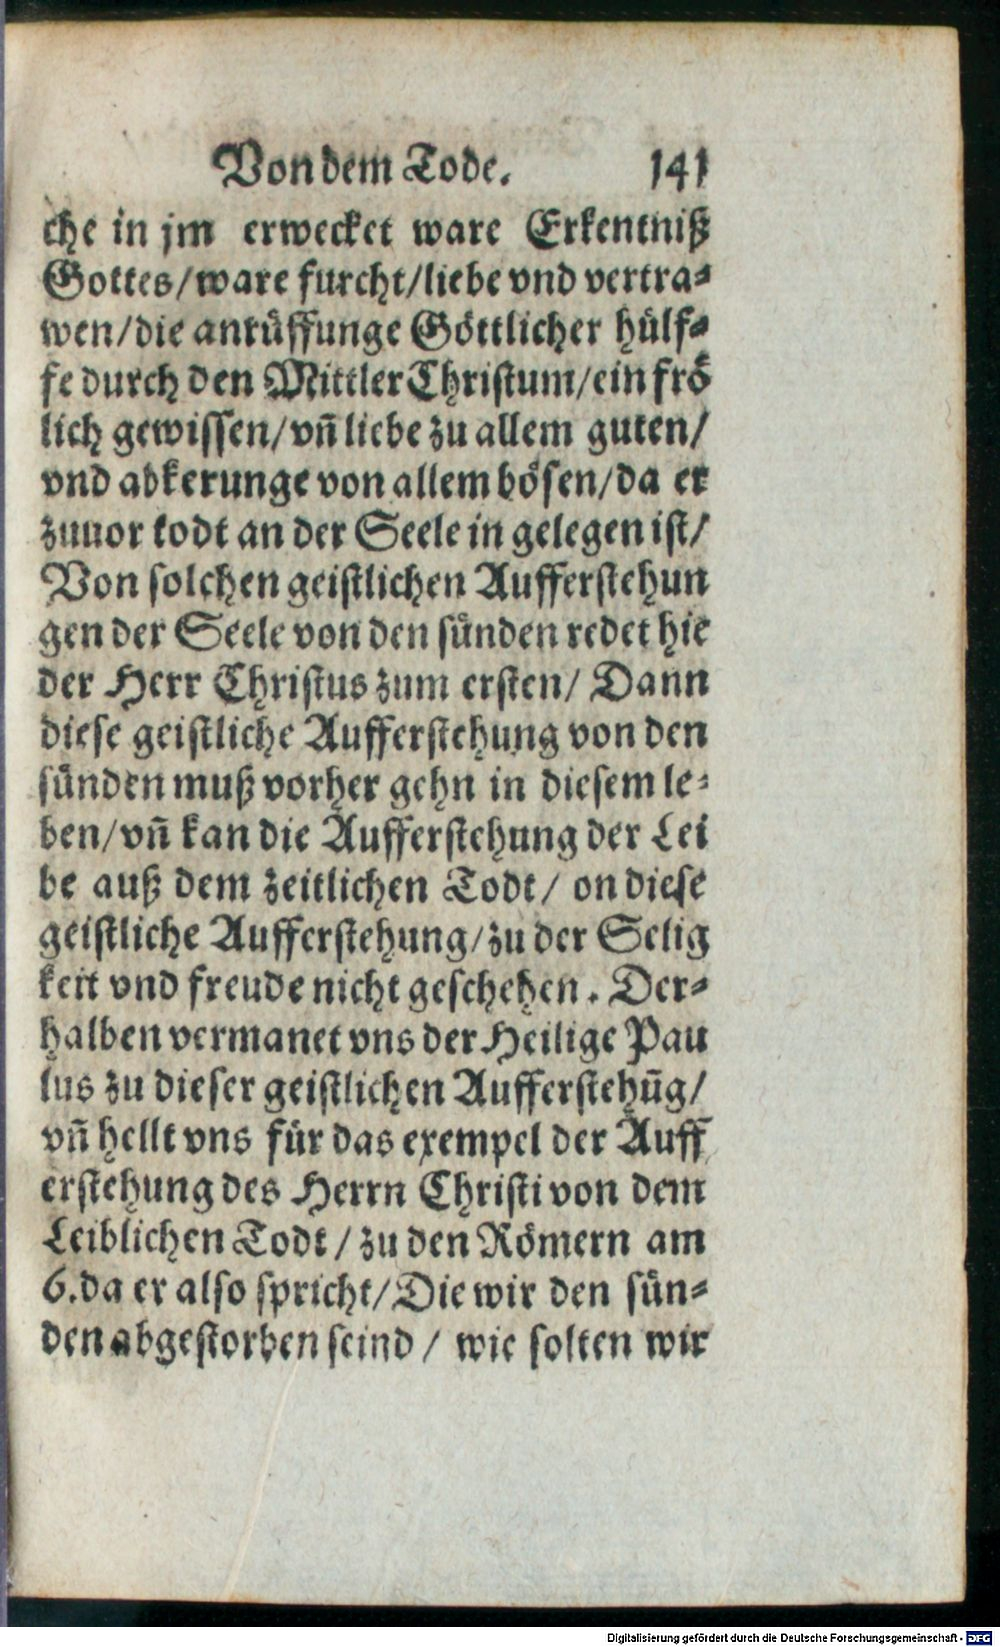 Von dem Tode. 141
che in jm erwecket ware Erkentniß
Gottes/ware furcht/liebe vnd vertra⸗
wen/die anrüffunge Göttlicher hülf⸗
fe durch den Mittler Christum/ein frö
lich gewissen/vñ liebe zu allem guten/
vnd abkerunge von allem bösen/da er
zuuor todt an der Seele in gelegen ist/
Von solchen geistlichen Aufferstehun
gen der Seele von den sünden redet hie
der Herr Christus zum ersten/ Dann
diese geistliche Aufferstehung von den
sünden muß vorher gehn in diesem le⸗
ben/vñ kan die Aufferstehung der Lei
be auß dem zeitlichen Todt/ on diese
geistliche Aufferstehung/zu der Selig
keit vnd freude nicht geschehen. Der⸗
halben vermanet vns der Heilige Pau
lus zu dieser geistlichen Aufferstehūg/
vñ hellt vns für das exempel der Auff
erstehung des Herrn Christi von dem
Leiblichen Todt/ zu den Römern am
6. da er also spricht/Die wir den sün⸗
den abgestorben seind/ wie solten wir
Digitalisierung gefördert durch die Deutsche Forschungsgemeinschaft - DFG